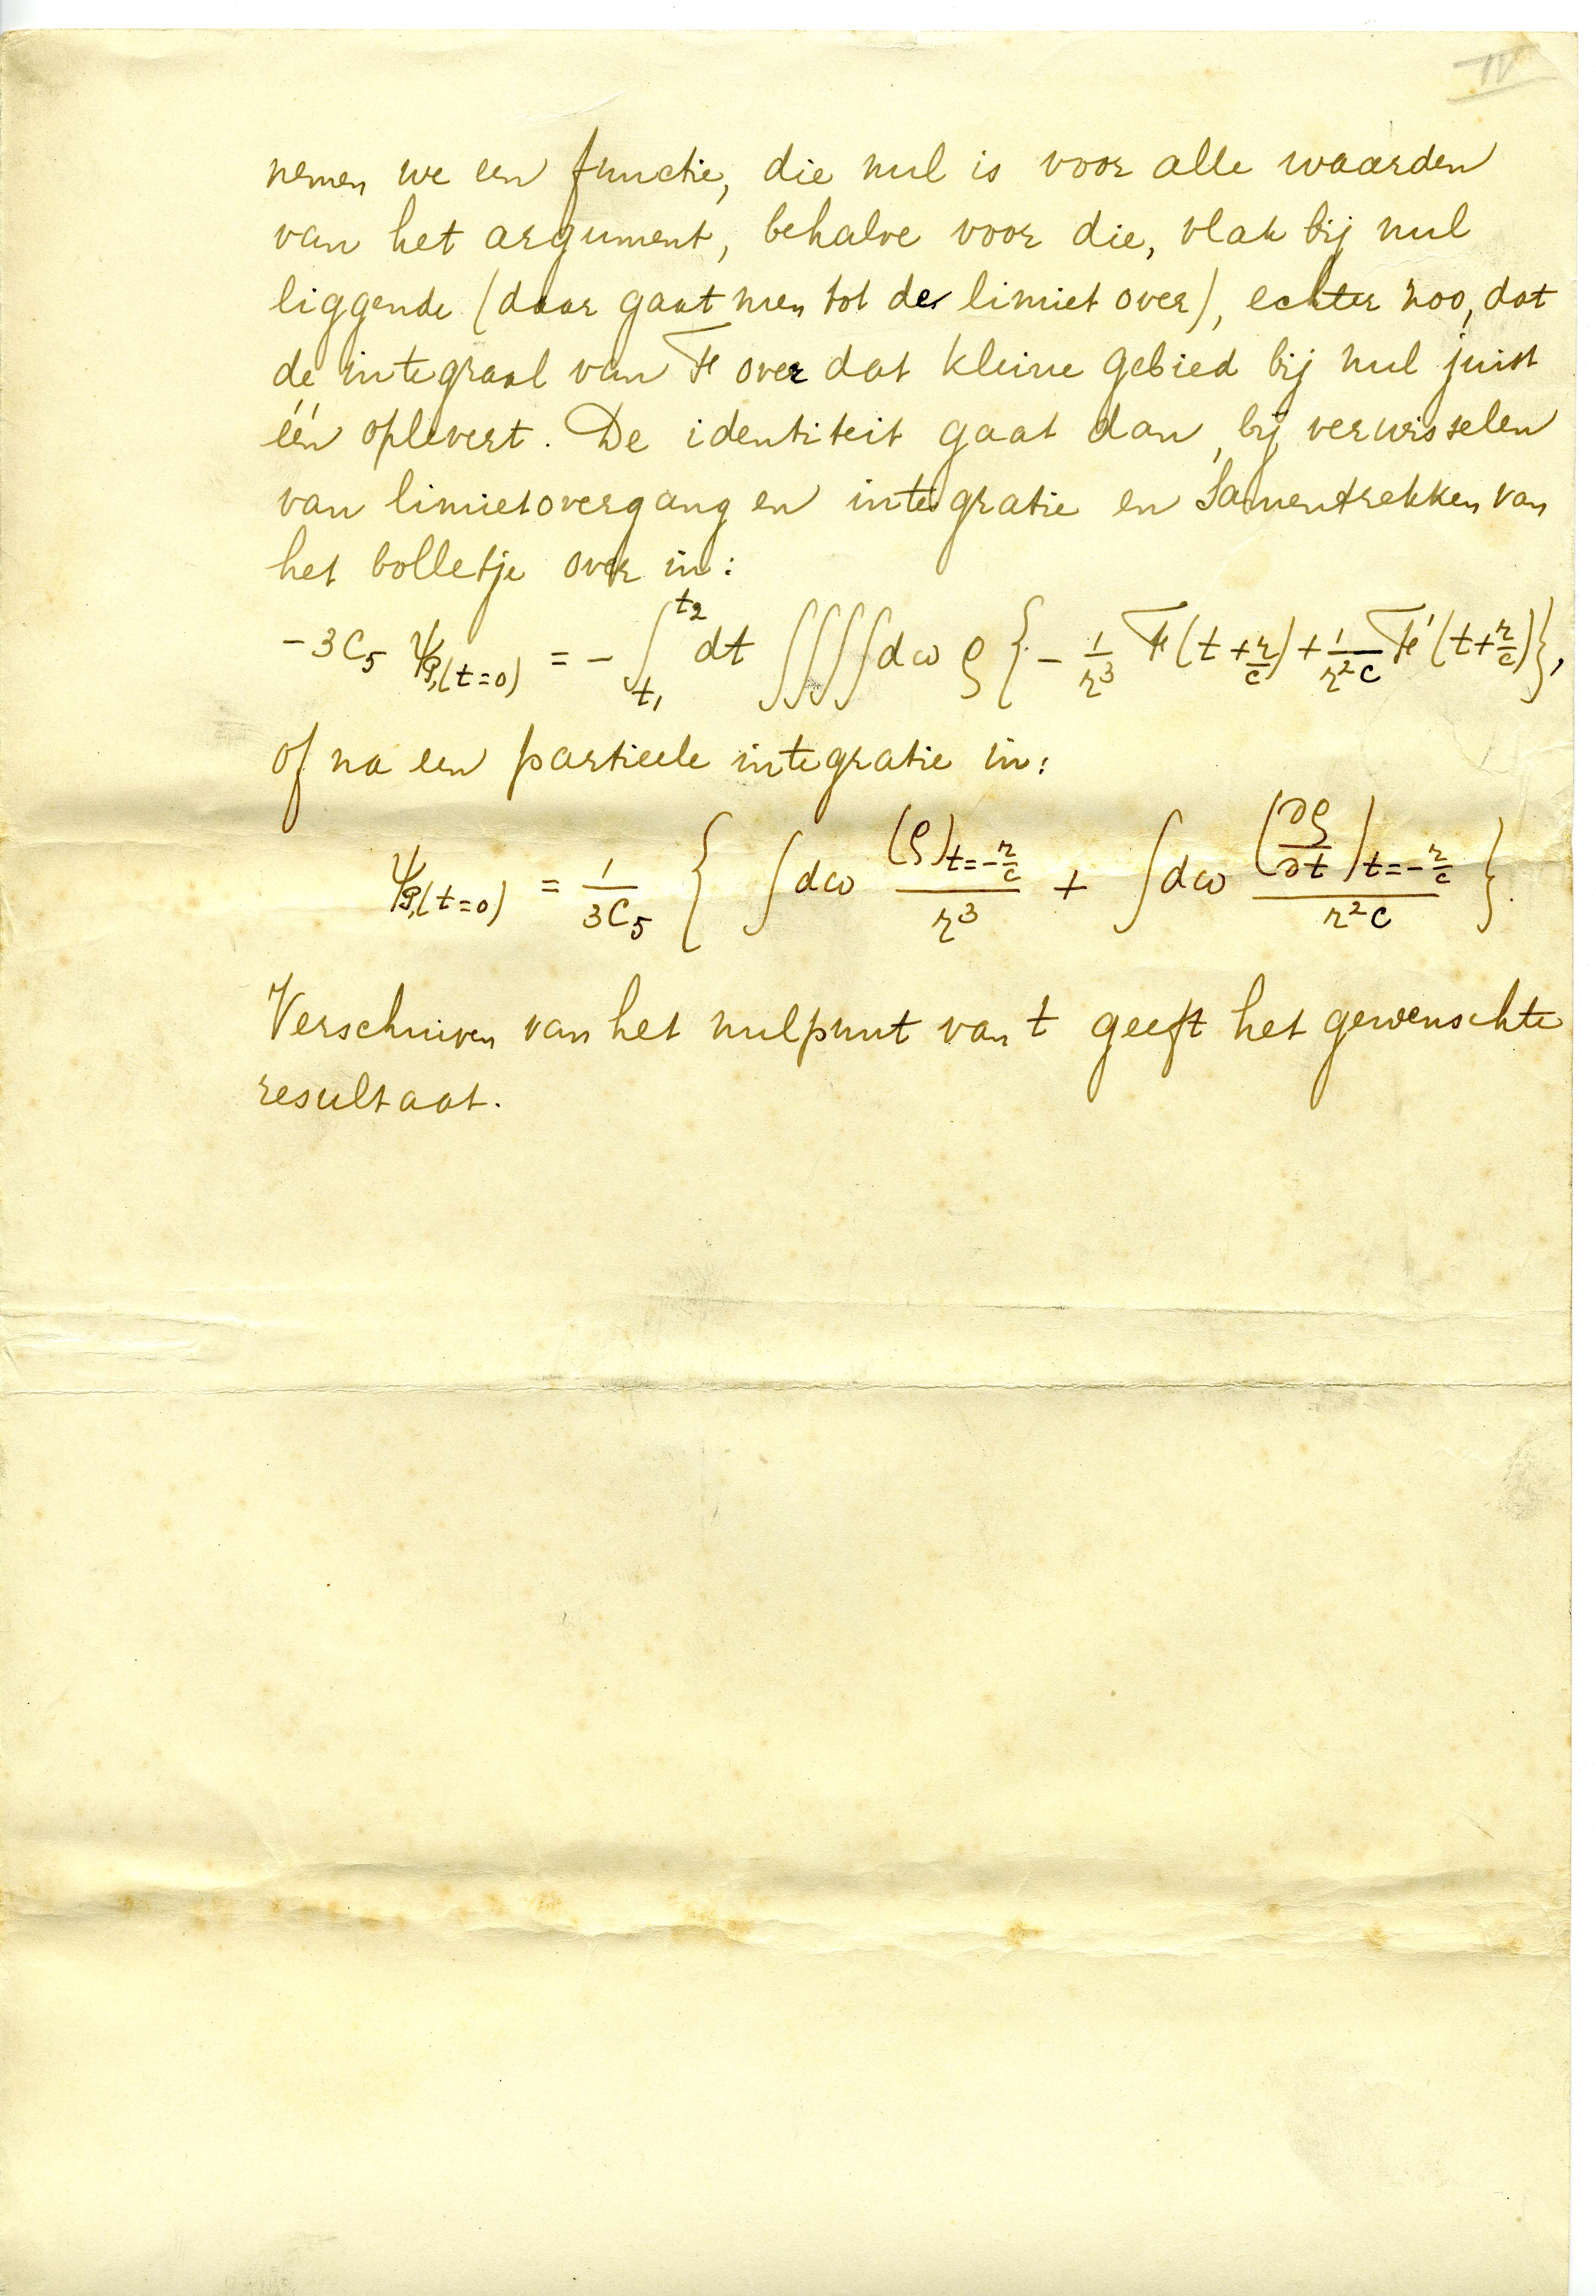 IV
nemen we een functie, die nul is voor alle waarden
van het argument, behalve voor die, vlak bij nul
liggende (daar gaat men tot de limiet over), echter zoo, dat
de integraal van F over dat kleine gebied bij nul juist
één oplevert. De identiteit gaat dan, bij verwisselen
van limietovergang en integratie en samentrekken van
het bolletje over in:
-3C₅ ψ_P,(t=0) = - ∫_t₁^t₂ dt ∫∫∫∫dω ρ { - 1/r³ F(t + r/c) + 1/r²c F'(t + r/c)},
of na een partieele integratie in:
ψ_P,(t=0) = 1/3C₅ { ∫dω (ρ)_t=-r/c / r³ + ∫dω (∂ρ/∂t)_t=-r/c / r²c }.
Verschuiven van het nulpunt van t geeft het gewenschte
resultaat.